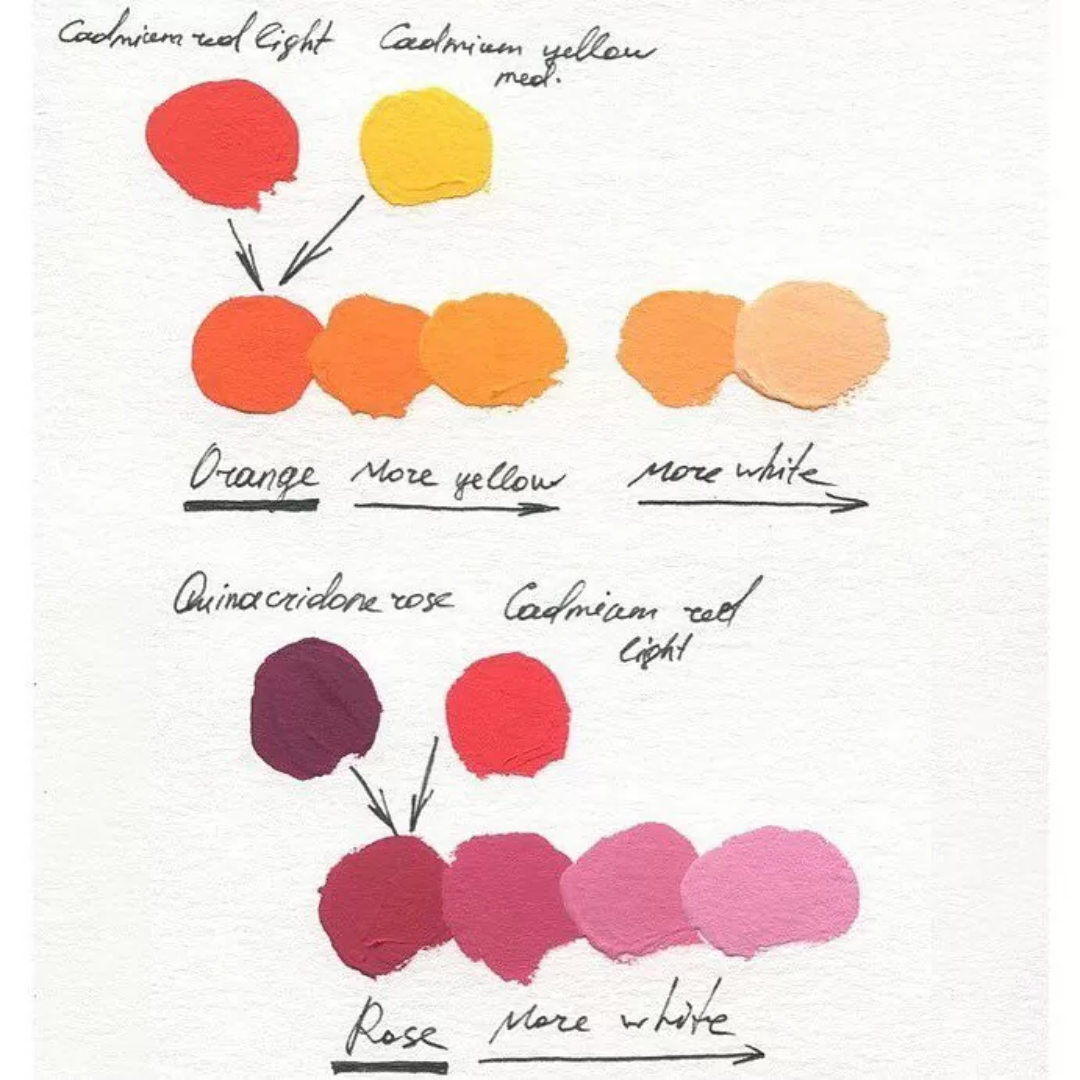 Cadmium red light
Cadmium yellow
med.
Orange
More yellow
More white
Quinacridone rose
Cadmium red
light
Rose
More white